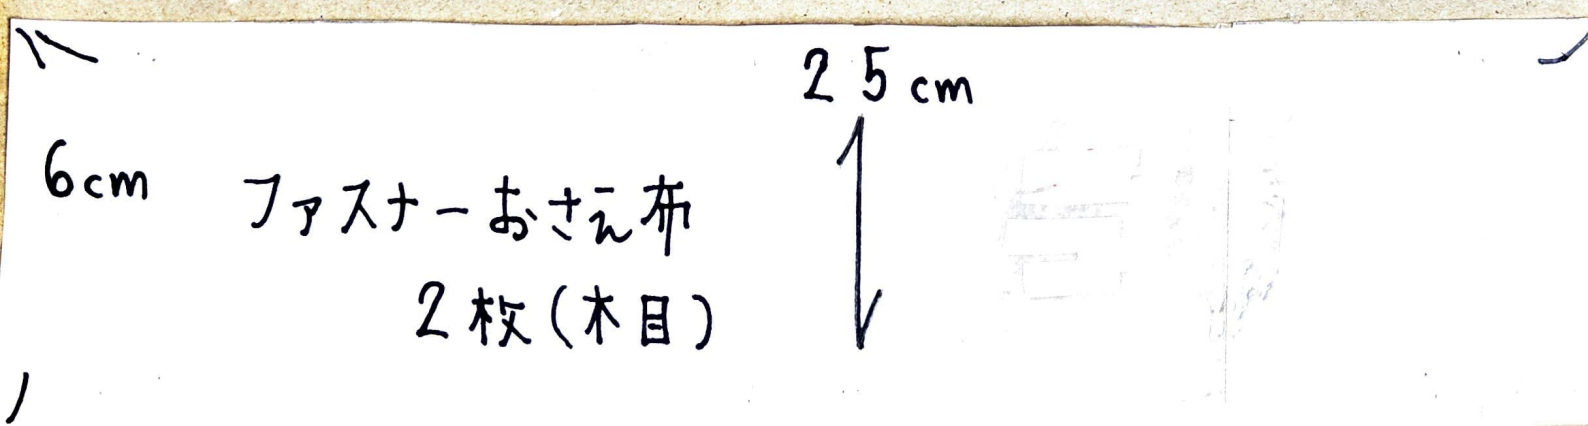 25cm
6cm
ファスナーおさえ布
2枚(木目)